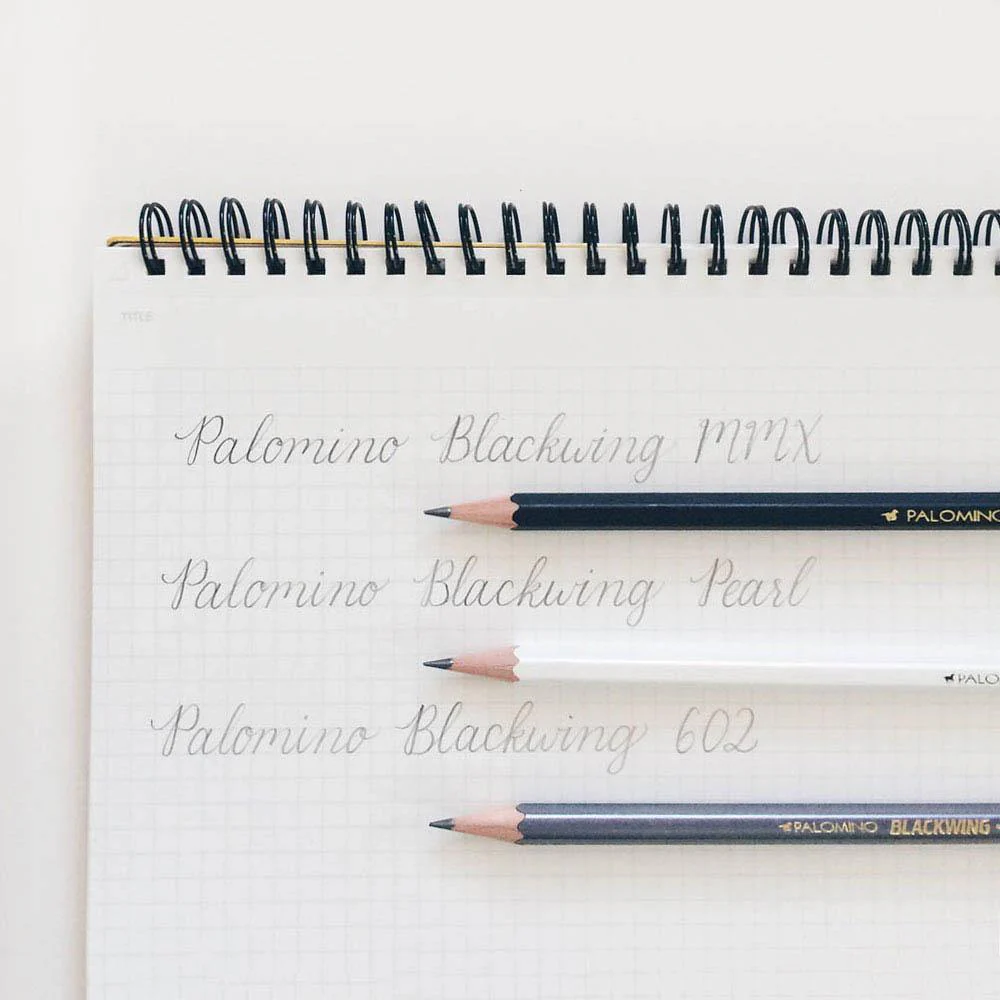 TITLE
Palomino Blackwing MMX
PALOMINO
Palomino Blackwing Pearl
PALO
Palomino Blackwing 602
PALOMINO BLACKWING